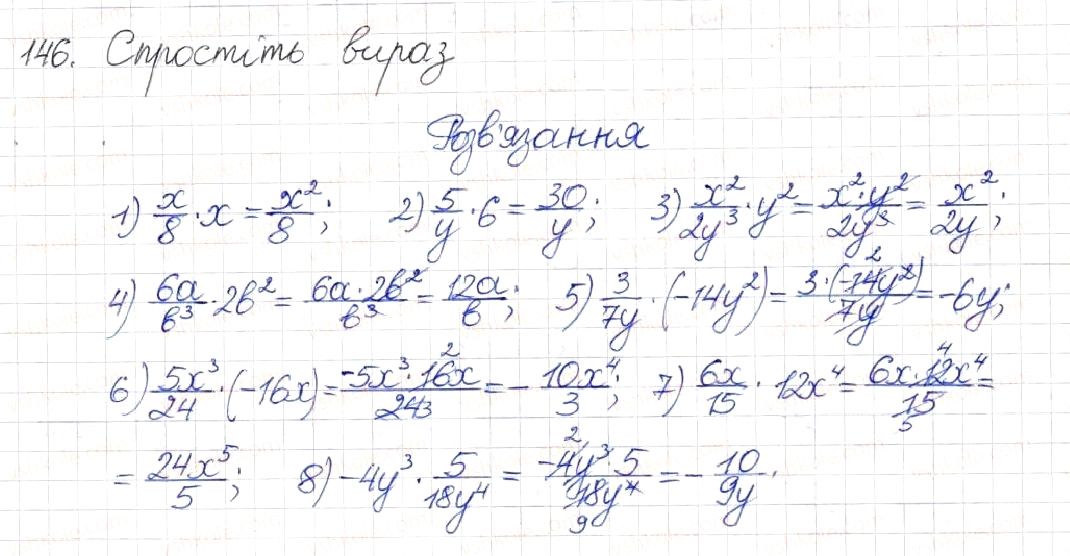 146. Спростіть вираз
Розв'язання
1) x/8 · x = x²/8; 2) 5/y · 6 = 30/y; 3) x²/2y³ · y² = x²·y²/2y³ = x²/2y;
4) 6a/b³ · 2b² = 6a·2b²/b³ = 12a/b; 5) 3/7y · (-14y²) = 3·(-14y²)/7y 2 = -6y;
6) 5x³/24 · (-16x) = -5x³·16x/24 2 3 = - 10x⁴/3; 7) 6x/15 · 12x⁴ = 6x·12x⁴/15 4 5 =
= 24x⁵/5; 8) -4y³ · 5/18y⁴ = -4y³·5/18y⁴ 2 9 = - 10/9y.